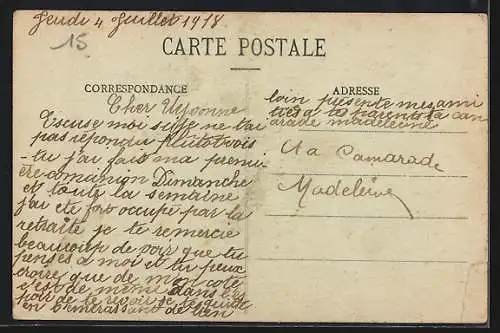 Jeudi 4 Juillet 1918
15
CARTE POSTALE
CORRESPONDANCE
ADRESSE
Cher Uyvonne
Escuse moi si je ne tai
pas répondu plutot vois
-tu j'ai fais ma premi-
ère comunion Dimanche
et toute la semaine
j'ai eté fort occupé par la
retraite je te remercie
beaucoup de voir que tu
penses a moi et tu peux
croire que de mon coté
c'est de meme dans l'es
poir de te revoir se
en t'embrassant de bien
loin présente mes ami
tiés a tes parents ta cam
arade madeleine
Ta Camarade
Madeleine